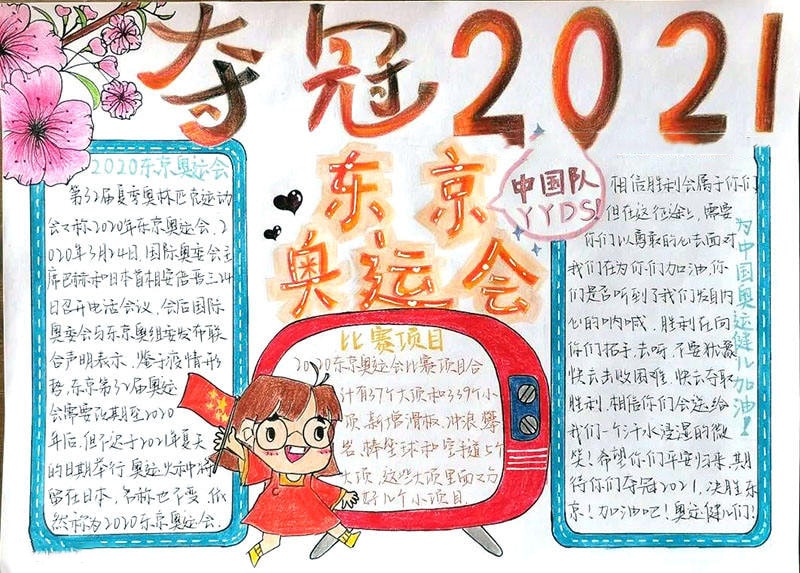 夺冠2021
东京
奥运会
中国队
YYDS!
2020东京奥运会
第32届夏季奥林匹克运动
会又称2020年东京奥运会.2
020年3月24日,国际奥委会主
席巴赫和日本首相安倍晋三24
日召开电话会议,会后国际
奥委会与东京奥组委发布联
合声明表示,鉴于疫情形
势,东京第32届奥运
会需要改期至2020
年后,但不迟于2021年夏天
的日期举行 奥运火种将
留在日本,名称也不变 依
然称为2020东京奥运会.
比赛项目
2020东京奥运会比赛项目合
计有37个大项和339个小
项,新增滑板,冲浪 攀
岩,棒垒球和空手道5个
大项.这些大项里面又分
好几个小项目.
相信胜利会属于你们
但在这征途上,需要
你们以勇敢的心去面对
我们在为你们加油,你
们是否听到了我们发自内
心的呐喊.胜利在向
你们招手.去吧,不要犹豫
快去击败困难.快去夺取
胜利.相信你们会送给
我们一个汗水浸湿的微
笑!希望你们平安归来.期
待你们夺冠2021,决胜东
京!加油吧!奥运健儿们!
为中国奥运健儿加油!